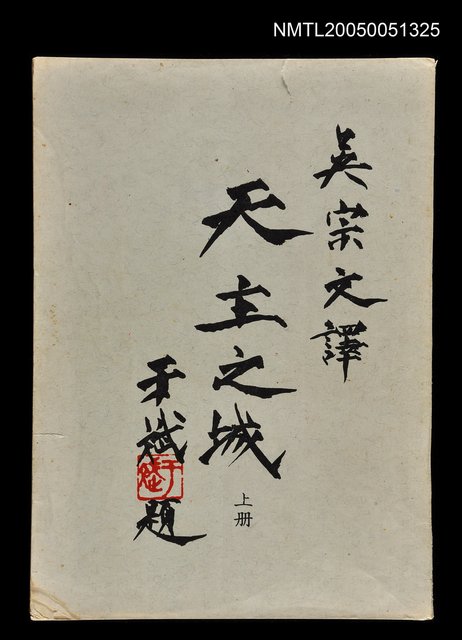 NMTL20050051325
吳宗文譯
天主之城
上册
于斌題
于斌